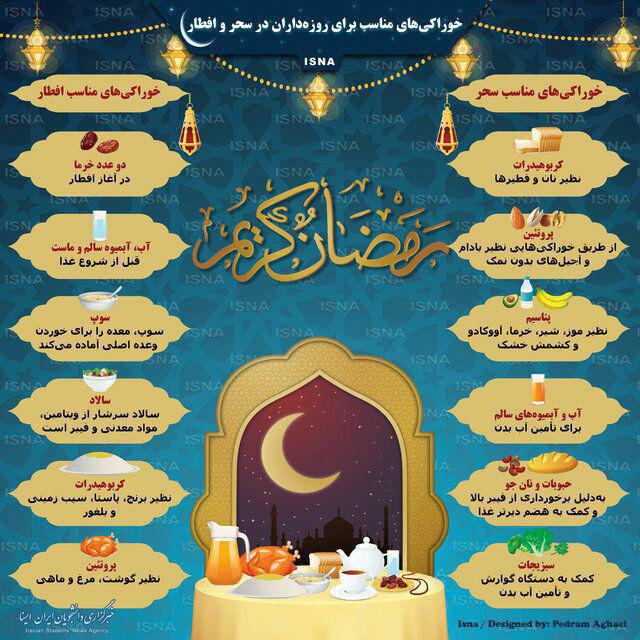 خوراکی‌های مناسب برای روزه‌داران در سحر و افطار
ISNA
خوراکی‌های مناسب سحر
کربوهیدرات
نظیر نان و فطیرها
پروتئین
از طریق خوراکی‌هایی نظیر بادام
و آجیل‌های بدون نمک
پتاسیم
نظیر موز، شیر، خرما، آووکادو
و کشمش خشک
آب و آبمیوه‌های سالم
برای تأمین آب بدن
حبوبات و نان جو
به‌دلیل برخورداری از فیبر بالا
و کمک به هضم دیرتر غذا
سبزیجات
کمک به دستگاه گوارش
و تأمین آب بدن
خوراکی‌های مناسب افطار
دو عدد خرما
در آغاز افطار
آب، آبمیوه سالم و ماست
قبل از شروع غذا
سوپ
سوپ، معده را برای خوردن
وعده اصلی آماده می‌کند
سالاد
سالاد سرشار از ویتامین،
مواد معدنی و فیبر است
کربوهیدرات
نظیر برنج، پاستا، سیب زمینی
و بلغور
پروتئین
نظیر گوشت، مرغ و ماهی
رمضان کریم
خبرگزاری دانشجویان ایران ایسنا
Iranian Students' News Agency
Isna / Designed by: Pedram Aghaei